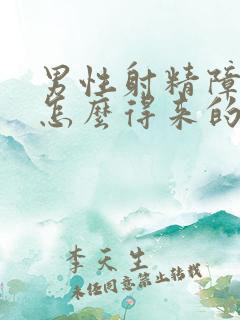 男性射精障
怎麽得来的
李天生
未经同意禁止转载